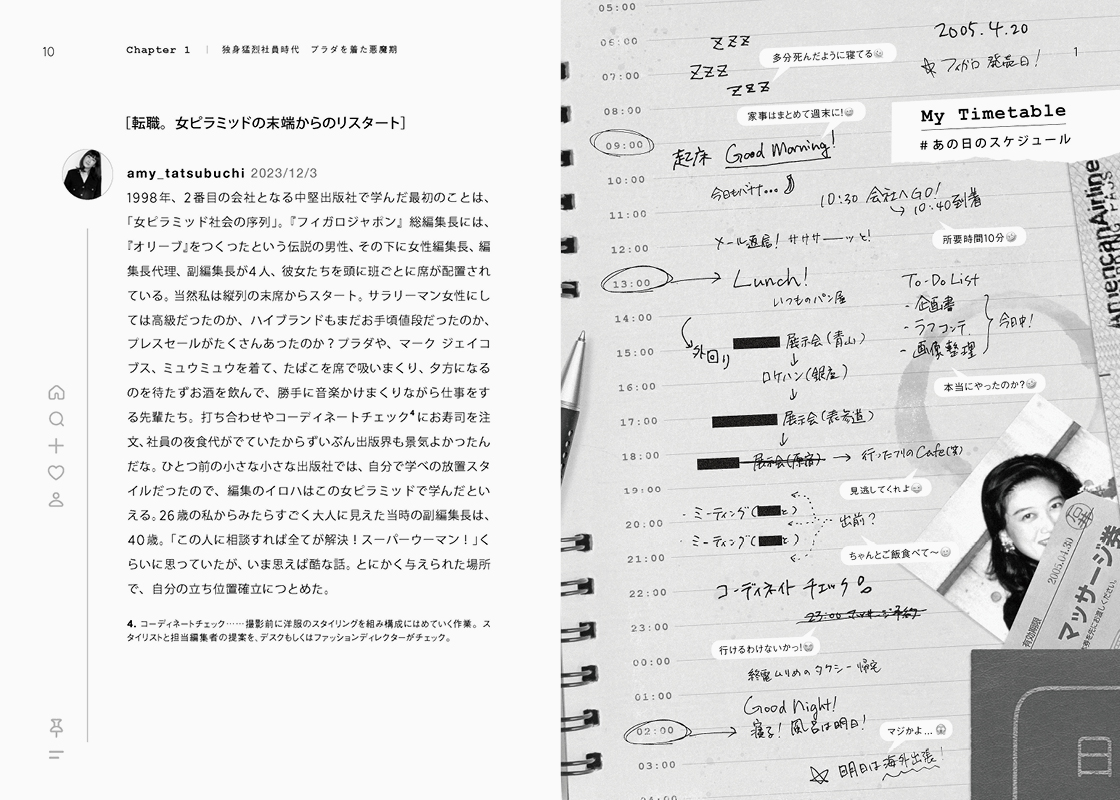 10
Chapter 1 | 独身猛烈社員時代 プラダを着た悪魔期
［転職。女ピラミッドの末端からのリスタート］
amy_tatsubuchi 2023/12/3
1998年、2番目の会社となる中堅出版社で学んだ最初のことは、
「女ピラミッド社会の序列」。『フィガロジャポン』総編集長には、
『オリーブ』をつくったという伝説の男性、その下に女性編集長、編
集長代理、副編集長が4人、彼女たちを頭に班ごとに席が配置され
ている。当然私は縦列の末席からスタート。サラリーマン女性にし
ては高級だったのか、ハイブランドもまだお手頃値段だったのか、
プレスセールがたくさんあったのか？プラダや、マーク ジェイコ
ブス、ミュウミュウを着て、たばこを席で吸いまくり、夕方になる
のを待たずお酒を飲んで、勝手に音楽かけまくりながら仕事をす
る先輩たち。打ち合わせやコーディネートチェック4にお寿司を注
文、社員の夜食代がでていたからずいぶん出版界も景気よかったん
だな。ひとつ前の小さな小さな出版社では、自分で学べの放置スタ
イルだったので、編集のイロハはこの女ピラミッドで学んだとい
える。26歳の私からみたらすごく大人に見えた当時の副編集長は、
40歳。「この人に相談すれば全てが解決！スーパーウーマン！」く
らいに思っていたが、いま思えば酷な話。とにかく与えられた場所
で、自分の立ち位置確立につとめた。
4. コーディネートチェック……撮影前に洋服のスタイリングを組み構成にはめていく作業。ス
タイリストと担当編集者の提案を、デスクもしくはファッションディレクターがチェック。
05:00
2005.4.20
06:00 ZZZ
多分死んだように寝てる
☆フィガロ 発売日！
1
07:00 ZZZ
ZZZ
08:00
家事はまとめて週末に！
My Timetable
#あの日のスケジュール
09:00 起床 Good Morning!
10:00
今日もバナナ…
10:30 会社へGO!
→ 10:40到着
11:00
所要時間10分
12:00 メール返信！サササーーッと！
13:00 → Lunch!
いつものパン屋
To-Do List
・企画書
・ラフコンテ
・画像整理
今日中！
14:00
外回り
展示会（青山）
15:00
↓
ロケハン（銀座）
本当にやったのか？
16:00
↓
17:00 展示会（表参道）
↓
18:00 展示会（原宿） → 行ったフリのCafe（笑）
19:00
見逃してくれよ
・ミーティング（ と）
20:00 出前？
・ミーティング（ と）
21:00
ちゃんとご飯食べて〜
22:00 コーディネイト チェック
23:00 マッサージ予約
23:00
行けるわけないかっ！
00:00
終電ムリめのタクシー帰宅
01:00
Good Night!
02:00 → 寝る！風呂は明日！
マジかよ…
03:00 ☆ 明日は海外出張！
American Airline
2005.04.30
マッサージ券
有効期限